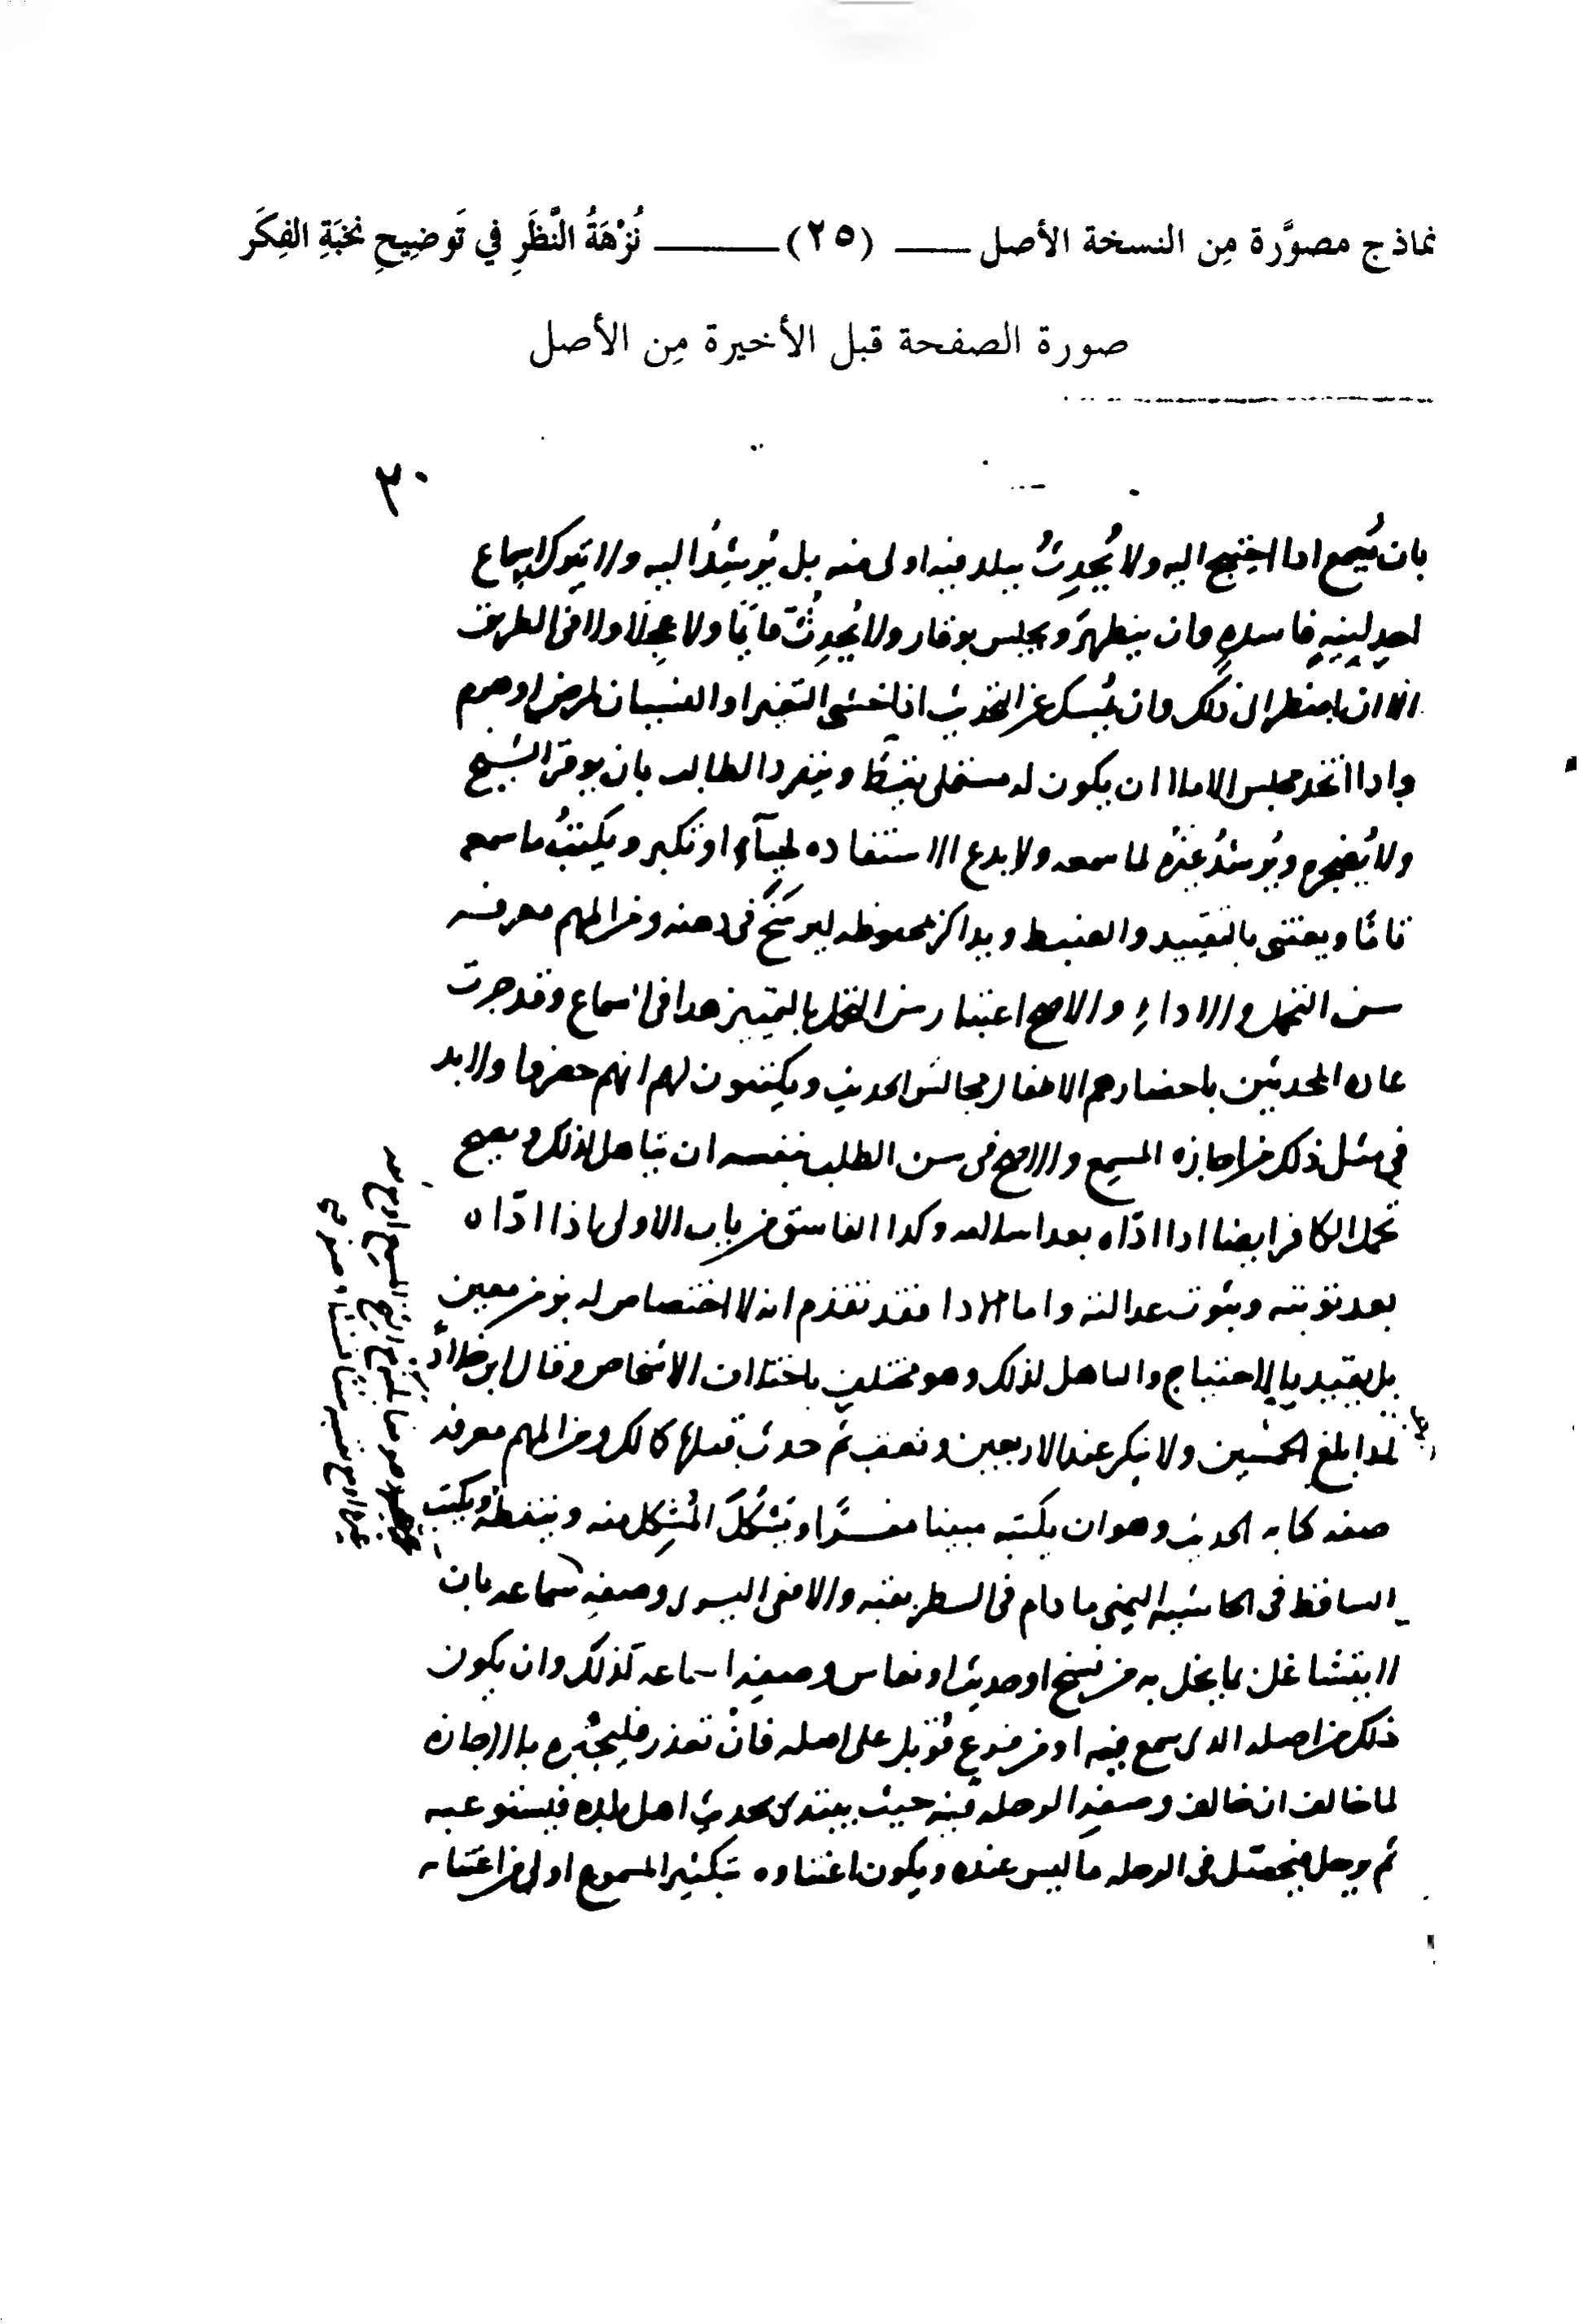 نماذج مصوَّرة مِن النسخة الأصل (٢٥) نُزْهَةُ النَّظَرِ في تَوضِيحِ نخبَةِ الفِكَر
صورة الصفحة قبل الأخيرة مِن الأصل
٣٠
بان يُسمع اذا احتيج اليه ولا يُحدِثُ ببلد فيه اولى منه بل يُرشِدُ اليه ولا يترك اسماع
احدٍ لنيةٍ فاسدةٍ وان يتطهر ويجلس بوقار ولا يُحدِثُ قائمًا ولا عجلا ولا في الطريق
الا ان اضطر الى ذلك وان يُمسك عن التحديث اذا خشى التغير او النسيان لمرض او هرم
واذا اتخذ مجلس الاملا ان يكون له مستملى يقظ وينفرد الطالب بان يوقر الشيخ
ولا يُضجره ويُرشدُ غيرَه لما سمعه ولا يدع الاستفاده لحيآءٍ او تكبر ويكتبُ ما سمعه
تامًا ويعتنى بالتقييد والضبط ويذاكر بمحفوظه ليرسَخَ في ذهنه ومن المهم معرفه
سن التحمل والاداءِ والاصح اعتبار سن التحمل بالتمييز هذا في السماع وقد جرت
عاده المحدثين باحضارهم الاطفال مجالس الحديث ويكتبون لهم انهم حضروا ولا بد
في مثل ذلك من اجازه المسمع والاصح في سن الطلب بنفسه ان يتاهل لذلك ويصح
تحمل الكافر ايضا اذا ادّاه بعد اسلامه وكذا الفاسق من باب الاولى اذا ادّاه
بعد توبته وثبوت عدالته واما الادا فقد تقدم انه لا اختصاص له بزمن معين
بل يقيد بالاحتياج والتاهل لذلك وهو مختلف باختلاف الاشخاص وقال ابن خلاد
اذا بلغ الخمسين ولا ينكر عند الاربعين وتعقب بمن حدث قبلها كمالك ومن المهم معرفه
صفه كتابه الحديث وهو ان يكتبه مبينا مفسَّرًا ويَشْكُلَ المُشكِل منه وينقطه ويكتب
الساقط في الحاشيه اليمنى ما دام في السطر بقيه والا ففى اليسرى وصفهِ سماعه بان
لا يتشاغل بما يخل به من نسخ او حديث او نعاس وصفهِ اسماعه كذلك وان يكون
ذلك من اصله الذى سمع فيه او من فرع قُوبل على اصله فان تعذر فليجبُره بالاجازه
لما خالف ان خالف وصفهِ الرحله فيه حيث يبتدى بحديث اهل بلده فيستوعبه
ثم يرحل فيحصّل في الرحله ما ليس عنده ويكون اعتناوه بتكثير المسموع اولى من اعتنايه